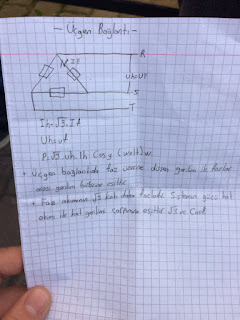 - Üçgen Bağlantı -
R
If
Uh=Uf
S
T
Ih=√3. If
Uh=Uf
P=√3. Uh. Ih Cos φ (watt) w.
+ Üçgen bağlantıda faz üzerine düşen gerilim ile fazlar
arası gerilim birbirine eşittir.
+ Faz akımının √3 katı daha fazladır. Sistemin gücü hat
akımı ile hat gerilimi çarpımına eşittir √3 ve Cosφ